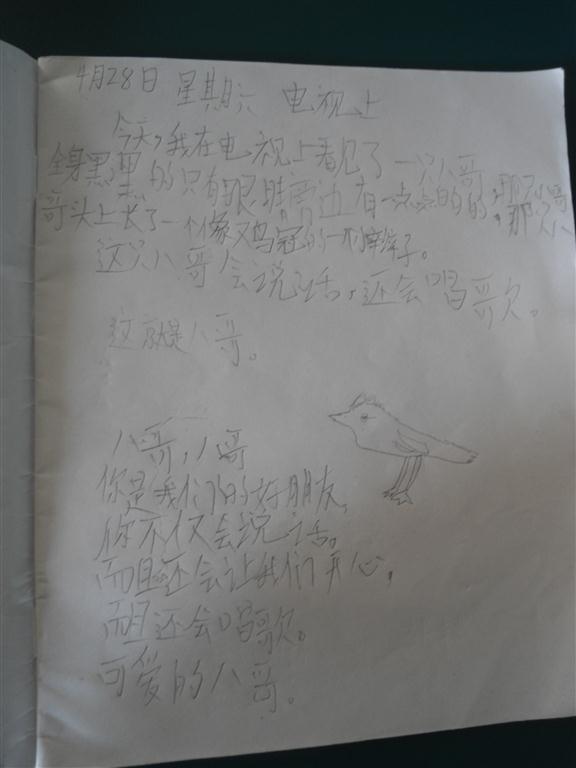 4月28日 星期六 电视上
今天,我在电视上看见了一只八哥,
全身黑黑的只有眼睛两边有一点点的的,那只八
哥头上长了一个像鸡冠的一个辫子。
这只八哥会说话,还会唱哥欠。
这就是八哥。
八哥,八哥
你是我们的好朋友,
你不仅会说话。
而且还会让我们开心,
而且还会唱歌欠。
可爱的八哥。